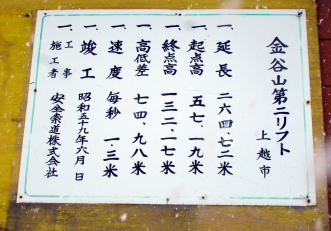 金谷山第二リフト
上越市
一、延長 二六四、七二米
一、起点高 五七、一九米
一、終点高 一三二、一七米
一、高低差 七四、九八米
一、速度 毎秒 一、三米
一、竣工 昭和五十九年六月 日
一、工事施工者 安全索道株式会社